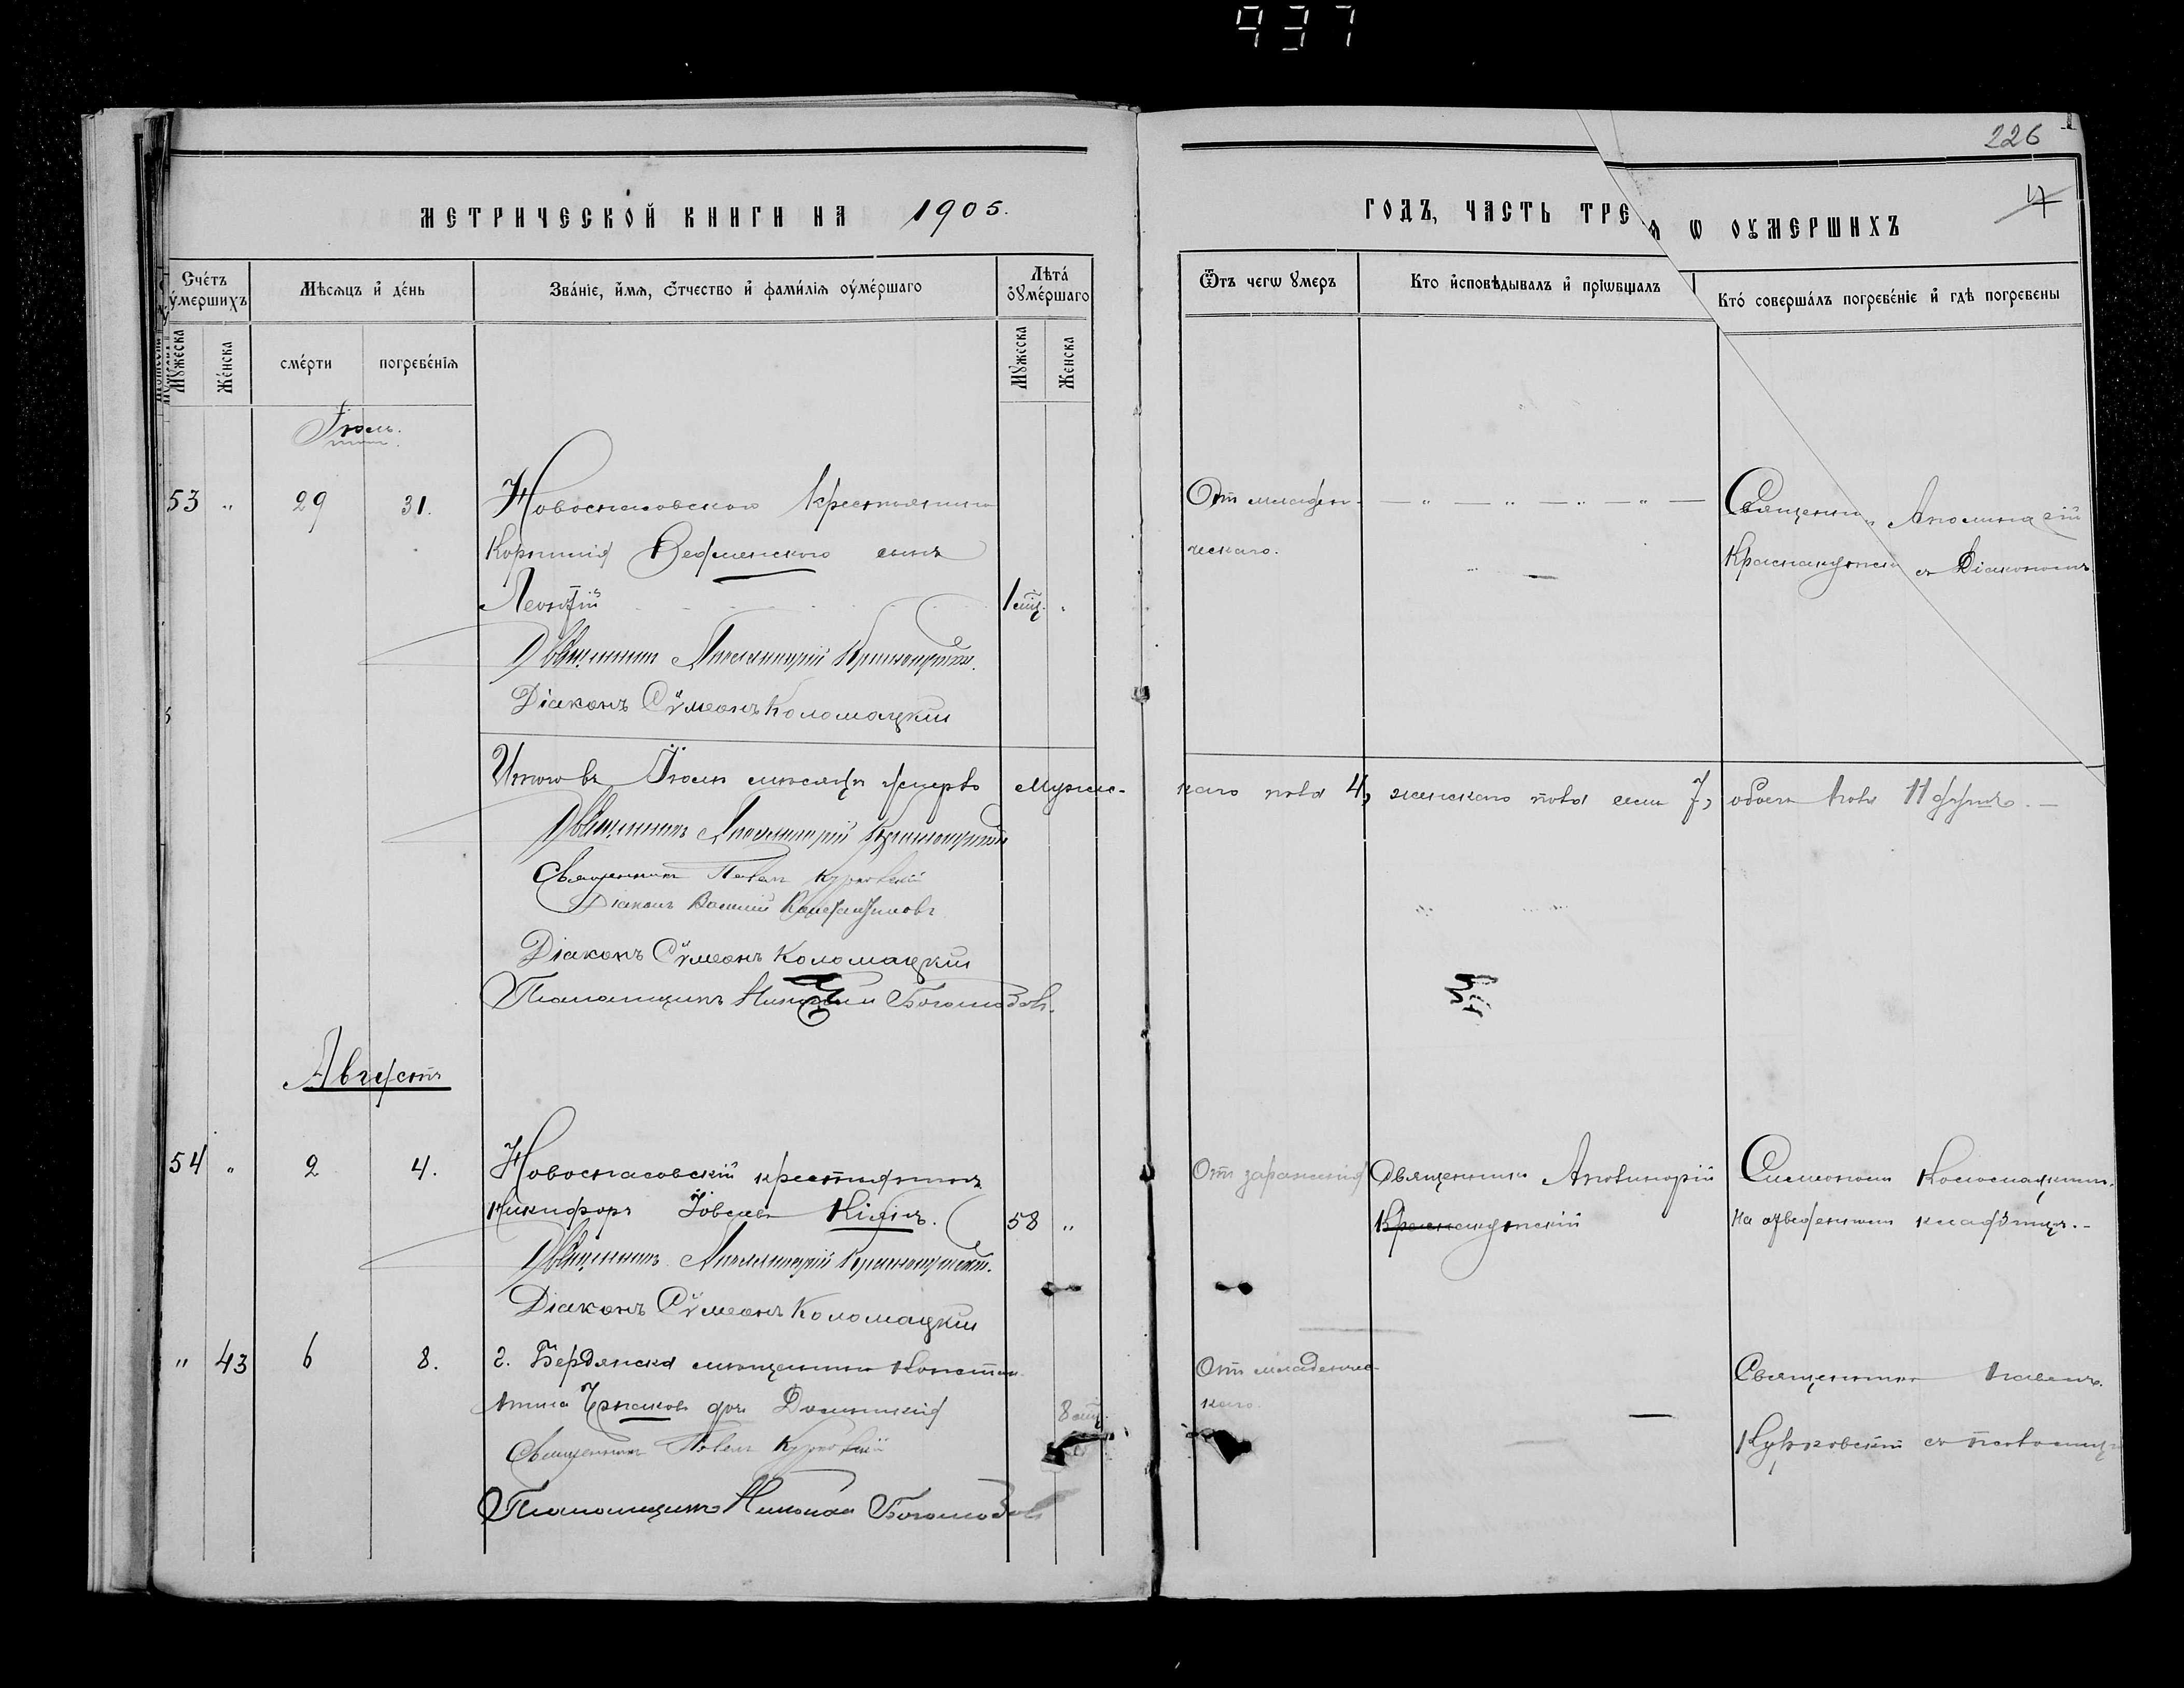 937
226
4
МЕТРИЧЕСКОЙ КНИГИ НА 1905.
ГОДЪ, ЧАСТЬ ТРЕ Я Ѡ ОУМЕРШИХЪ
Счéтъ ýмершихъ
Мѣсяцъ и҆ дéнь
Звáнїе, и҆́мя, ѿтчество и҆ фамѝлїя оумéршаго
Лѣтà оумéршаго
Ѿтъ чегѡ ꙋмеръ
Кто и҆сповѣдывалъ и҆ прїѡбщалъ
Ктó совершáлъ погребéнїе и҆ гдѣ погребены
Мꙋжеска
Жéнска
смéрти
погребéнїя
Мꙋжеска
Жéнска
Іюль.
53 „ 29 31. Новоспасовскаго крестьянина
Корнилія сынъ
Леонтій 1 мц. „
Священникъ Аполинарій Краснокутскій.
Діаконъ Сѵмеонъ Коломацкій
От младен-
ческаго.
Священник Аполинарій
Краснокутскій съ Діакономъ
Итого въ Іюлѣ мѣсяцѣ умерло мужес-
каго пола 4, женскаго пола семь 7, обоего пола 11 душъ. —
Священникъ Аполинарій Краснокутскій
Священникъ Павелъ
Діаконъ Василій Константиновъ
Діаконъ Сѵмеонъ Коломацкій
Псаломщикъ Николай Богомоловъ.
Августъ
54 „ 2 4. Новоспасовскій крестьянинъ
Никифоръ Іовлевъ Кіяінъ. 58 „
Священникъ Аполинарій Краснокутскій.
Діаконъ Сѵмеонъ Коломацкій
От зараженія
Священникъ Аполинарій
Краснокутскій
Симеономъ Коломацкимъ.
На отведенномъ кладбищѣ. –
„ 43 6 8. г. Бердянска мѣщанина Констан-
тина дочь Домникія 8 мц.
Священникъ Павелъ
Псаломщикъ Николай Богомоловъ
От младенчес-
каго.
Священникъ Павелъ
съ псаломщ